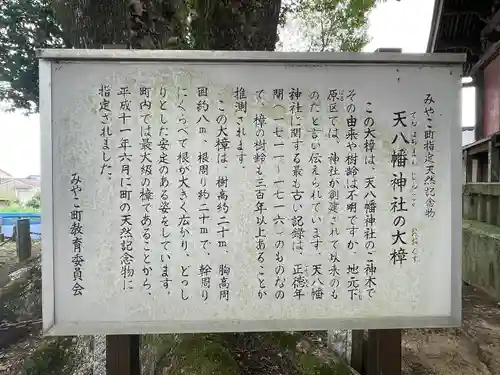 みやこ町指定天然記念物
天八幡神社の大樟
この大樟は、天八幡神社のご神木で
その由来や樹齢は不明ですが、地元下
原区では、神社が創建されて以来のも
のだと言い伝えられています。天八幡
神社に関する最も古い記録は、正徳年
間(一七一一~一七一六)のものなの
で、樟の樹齢も三百年以上あることが
推測されます。
この大樟は、樹高約二十m、胸高周
囲約八m、根周り約二十mで、幹周り
にくらべて根が大きく広がり、どっし
りとした安定のある姿をしています。
町内では最大級の樟であることから、
平成十一年六月に町の天然記念物に
指定されました。
みやこ町教育委員会